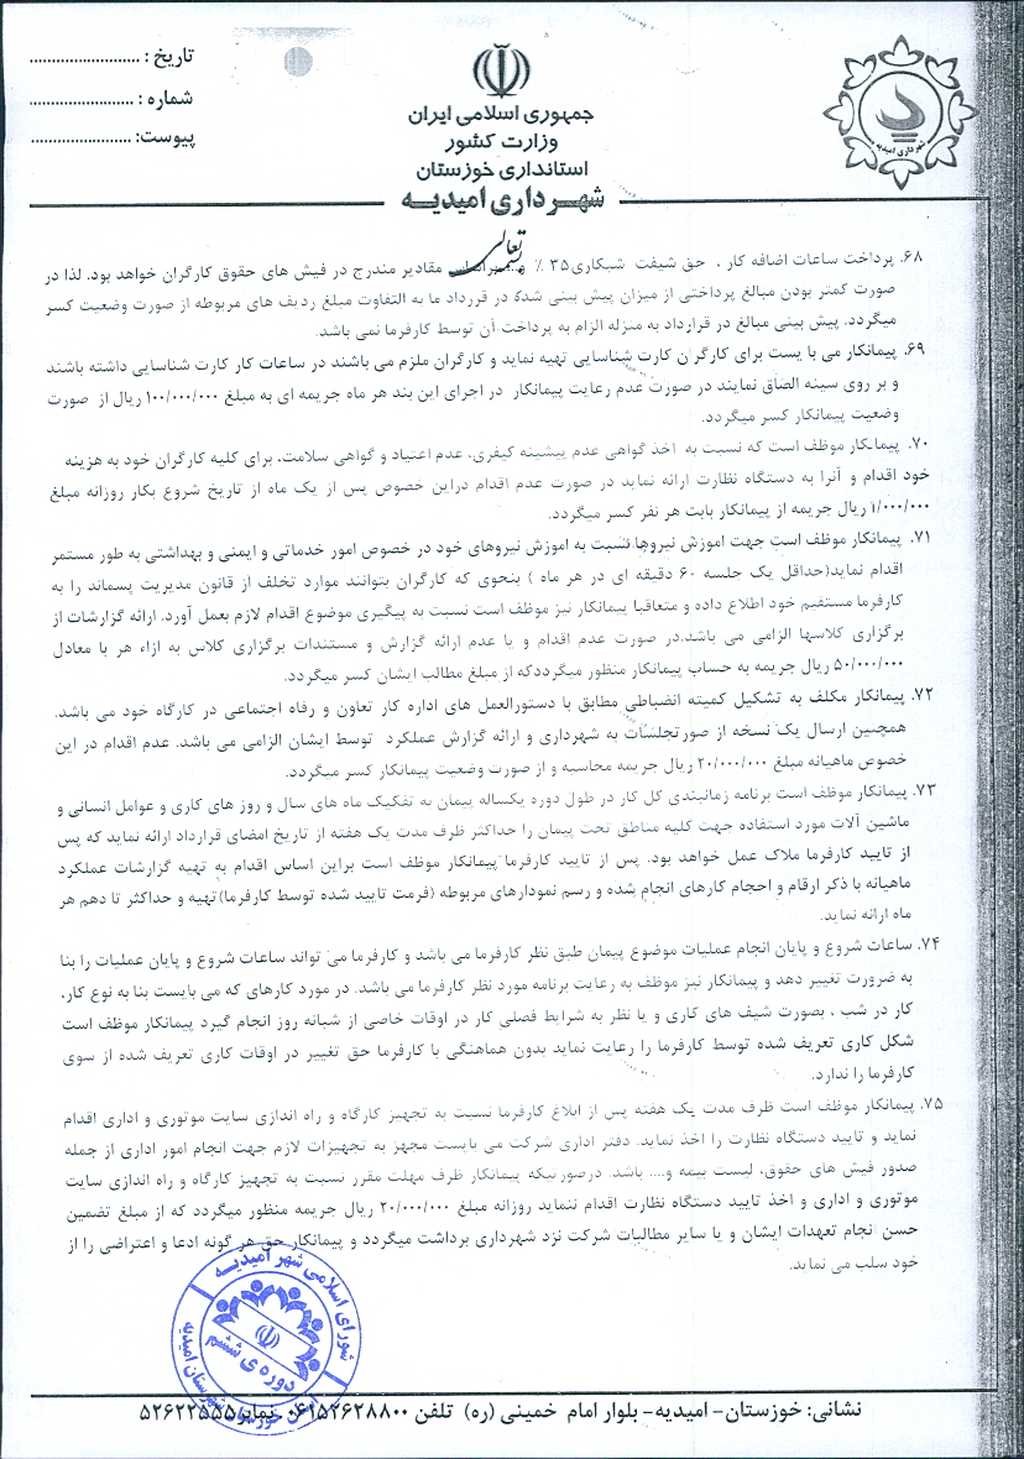 تاریخ : .........................
شماره : ........................
پیوست: .......................
جمهوری اسلامی ایران
وزارت کشور
استانداری خوزستان
شهرداری امیدیه
شهرداری امیدیه
بسمه تعالی
۶۸. پرداخت ساعات اضافه کار ، حق شیفت شبکاری۳۵ ٪ و... براساس مقادیر مندرج در فیش های حقوق کارگران خواهد بود. لذا در
صورت کمتر بودن مبالغ پرداختی از میزان پیش بینی شده در قرارداد ما به التفاوت مبلغ ردیف های مربوطه از صورت وضعیت کسر
میگردد. پیش بینی مبالغ در قرارداد به منزله الزام به پرداخت آن توسط کارفرما نمی باشد.
۶۹. پیمانکار می با یست برای کارگران کارت شناسایی تهیه نماید و کارگران ملزم می باشند در ساعات کار کارت شناسایی داشته باشند
و بر روی سینه الصاق نمایند در صورت عدم رعایت پیمانکار در اجرای این بند هر ماه جریمه ای به مبلغ ۱۰۰/۰۰۰/۰۰۰ ریال از صورت
وضعیت پیمانکار کسر میگردد.
۷۰. پیمانکار موظف است که نسبت به اخذ گواهی عدم پیشینه کیفری، عدم اعتیاد و گواهی سلامت، برای کلیه کارگران خود به هزینه
خود اقدام و آنرا به دستگاه نظارت ارائه نماید در صورت عدم اقدام دراین خصوص پس از یک ماه از تاریخ شروع بکار روزانه مبلغ
۱/۰۰۰/۰۰۰ ریال جریمه از پیمانکار بابت هر نفر کسر میگردد.
۷۱. پیمانکار موظف است جهت اموزش نیروها نسبت به اموزش نیروهای خود در خصوص امور خدماتی و ایمنی و بهداشتی به طور مستمر
اقدام نماید(حداقل یک جلسه ۶۰ دقیقه ای در هر ماه ) بنحوی که کارگران بتوانند موارد تخلف از قانون مدیریت پسماند را به
کارفرما مستقیم خود اطلاع داده و متعاقبا پیمانکار نیز موظف است نسبت به پیگیری موضوع اقدام لازم بعمل آورد. ارائه گزارشات از
برگزاری کلاسها الزامی می باشد.در صورت عدم اقدام و یا عدم ارائه گزارش و مستندات برگزاری کلاس به ازاء هر با معادل
۵۰/۰۰۰/۰۰۰ ریال جریمه به حساب پیمانکار منظور میگرددکه از مبلغ مطالب ایشان کسر میگردد.
۷۲. پیمانکار مکلف به تشکیل کمیته انضباطی مطابق با دستورالعمل های اداره کار تعاون و رفاه اجتماعی در کارگاه خود می باشد.
همچنین ارسال یک نسخه از صورتجلسات به شهرداری و ارائه گزارش عملکرد توسط ایشان الزامی می باشد. عدم اقدام در این
خصوص ماهیانه مبلغ ۲۰/۰۰۰/۰۰۰ ریال جریمه محاسبه و از صورت وضعیت پیمانکار کسر میگردد.
۷۳. پیمانکار موظف است برنامه زمانبندی کل کار در طول دوره یکساله پیمان به تفکیک ماه های سال و روز های کاری و عوامل انسانی و
ماشین آلات مورد استفاده جهت کلیه مناطق تحت پیمان را حداکثر ظرف مدت یک هفته از تاریخ امضای قرارداد ارائه نماید که پس
از تایید کارفرما ملاک عمل خواهد بود. پس از تایید کارفرما پیمانکار موظف است براین اساس اقدام به تهیه گزارشات عملکرد
ماهیانه با ذکر ارقام و احجام کارهای انجام شده و رسم نمودارهای مربوطه (فرمت تایید شده توسط کارفرما)تهیه و حداکثر تا دهم هر
ماه ارائه نماید.
۷۴. ساعات شروع و پایان انجام عملیات موضوع پیمان طبق نظر کارفرما می باشد و کارفرما می تواند ساعات شروع و پایان عملیات را بنا
به ضرورت تغییر دهد و پیمانکار نیز موظف به رعایت برنامه مورد نظر کارفرما می باشد. در مورد کارهای که می بایست بنا به نوع کار،
کار در شب ، بصورت شیف های کاری و یا نظر به شرایط فصلی کار در اوقات خاصی از شبانه روز انجام گیرد پیمانکار موظف است
شکل کاری تعریف شده توسط کارفرما را رعایت نماید بدون هماهنگی با کارفرما حق تغییر در اوقات کاری تعریف شده از سوی
کارفرما را ندارد.
۷۵. پیمانکار موظف است ظرف مدت یک هفته پس از ابلاغ کارفرما نسبت به تجهیز کارگاه و راه اندازی سایت موتوری و اداری اقدام
نماید و تایید دستگاه نظارت را اخذ نماید. دفتر اداری شرکت می بایست مجهز به تجهیزات لازم جهت انجام امور اداری از جمله
صدور فیش های حقوق، لیست بیمه و.... باشد. درصورتیکه پیمانکار ظرف مهلت مقرر نسبت به تجهیز کارگاه و راه اندازی سایت
موتوری و اداری و اخذ تایید دستگاه نظارت اقدام ننماید روزانه مبلغ ۲۰/۰۰۰/۰۰۰ ریال جریمه منظور میگردد که از مبلغ تضمین
حسن انجام تعهدات ایشان و یا سایر مطالبات شرکت نزد شهرداری برداشت میگردد و پیمانکار حق هر گونه ادعا و اعتراضی را از
خود سلب می نماید.
شورای اسلامی شهر امیدیه
دوره ی ششم
استان خوزستان شهرستان امیدیه
نشانی: خوزستان- امیدیه- بلوار امام خمینی (ره) تلفن ۰۶۱۵۲۶۲۸۸۰۰ نمابر۵۲۶۲۲۵۵۵